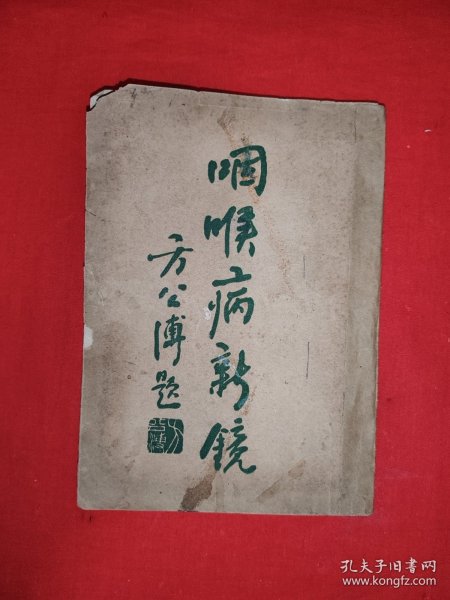 咽喉病新镜
方公溥题
孔夫子旧书网
www.kongfz.com